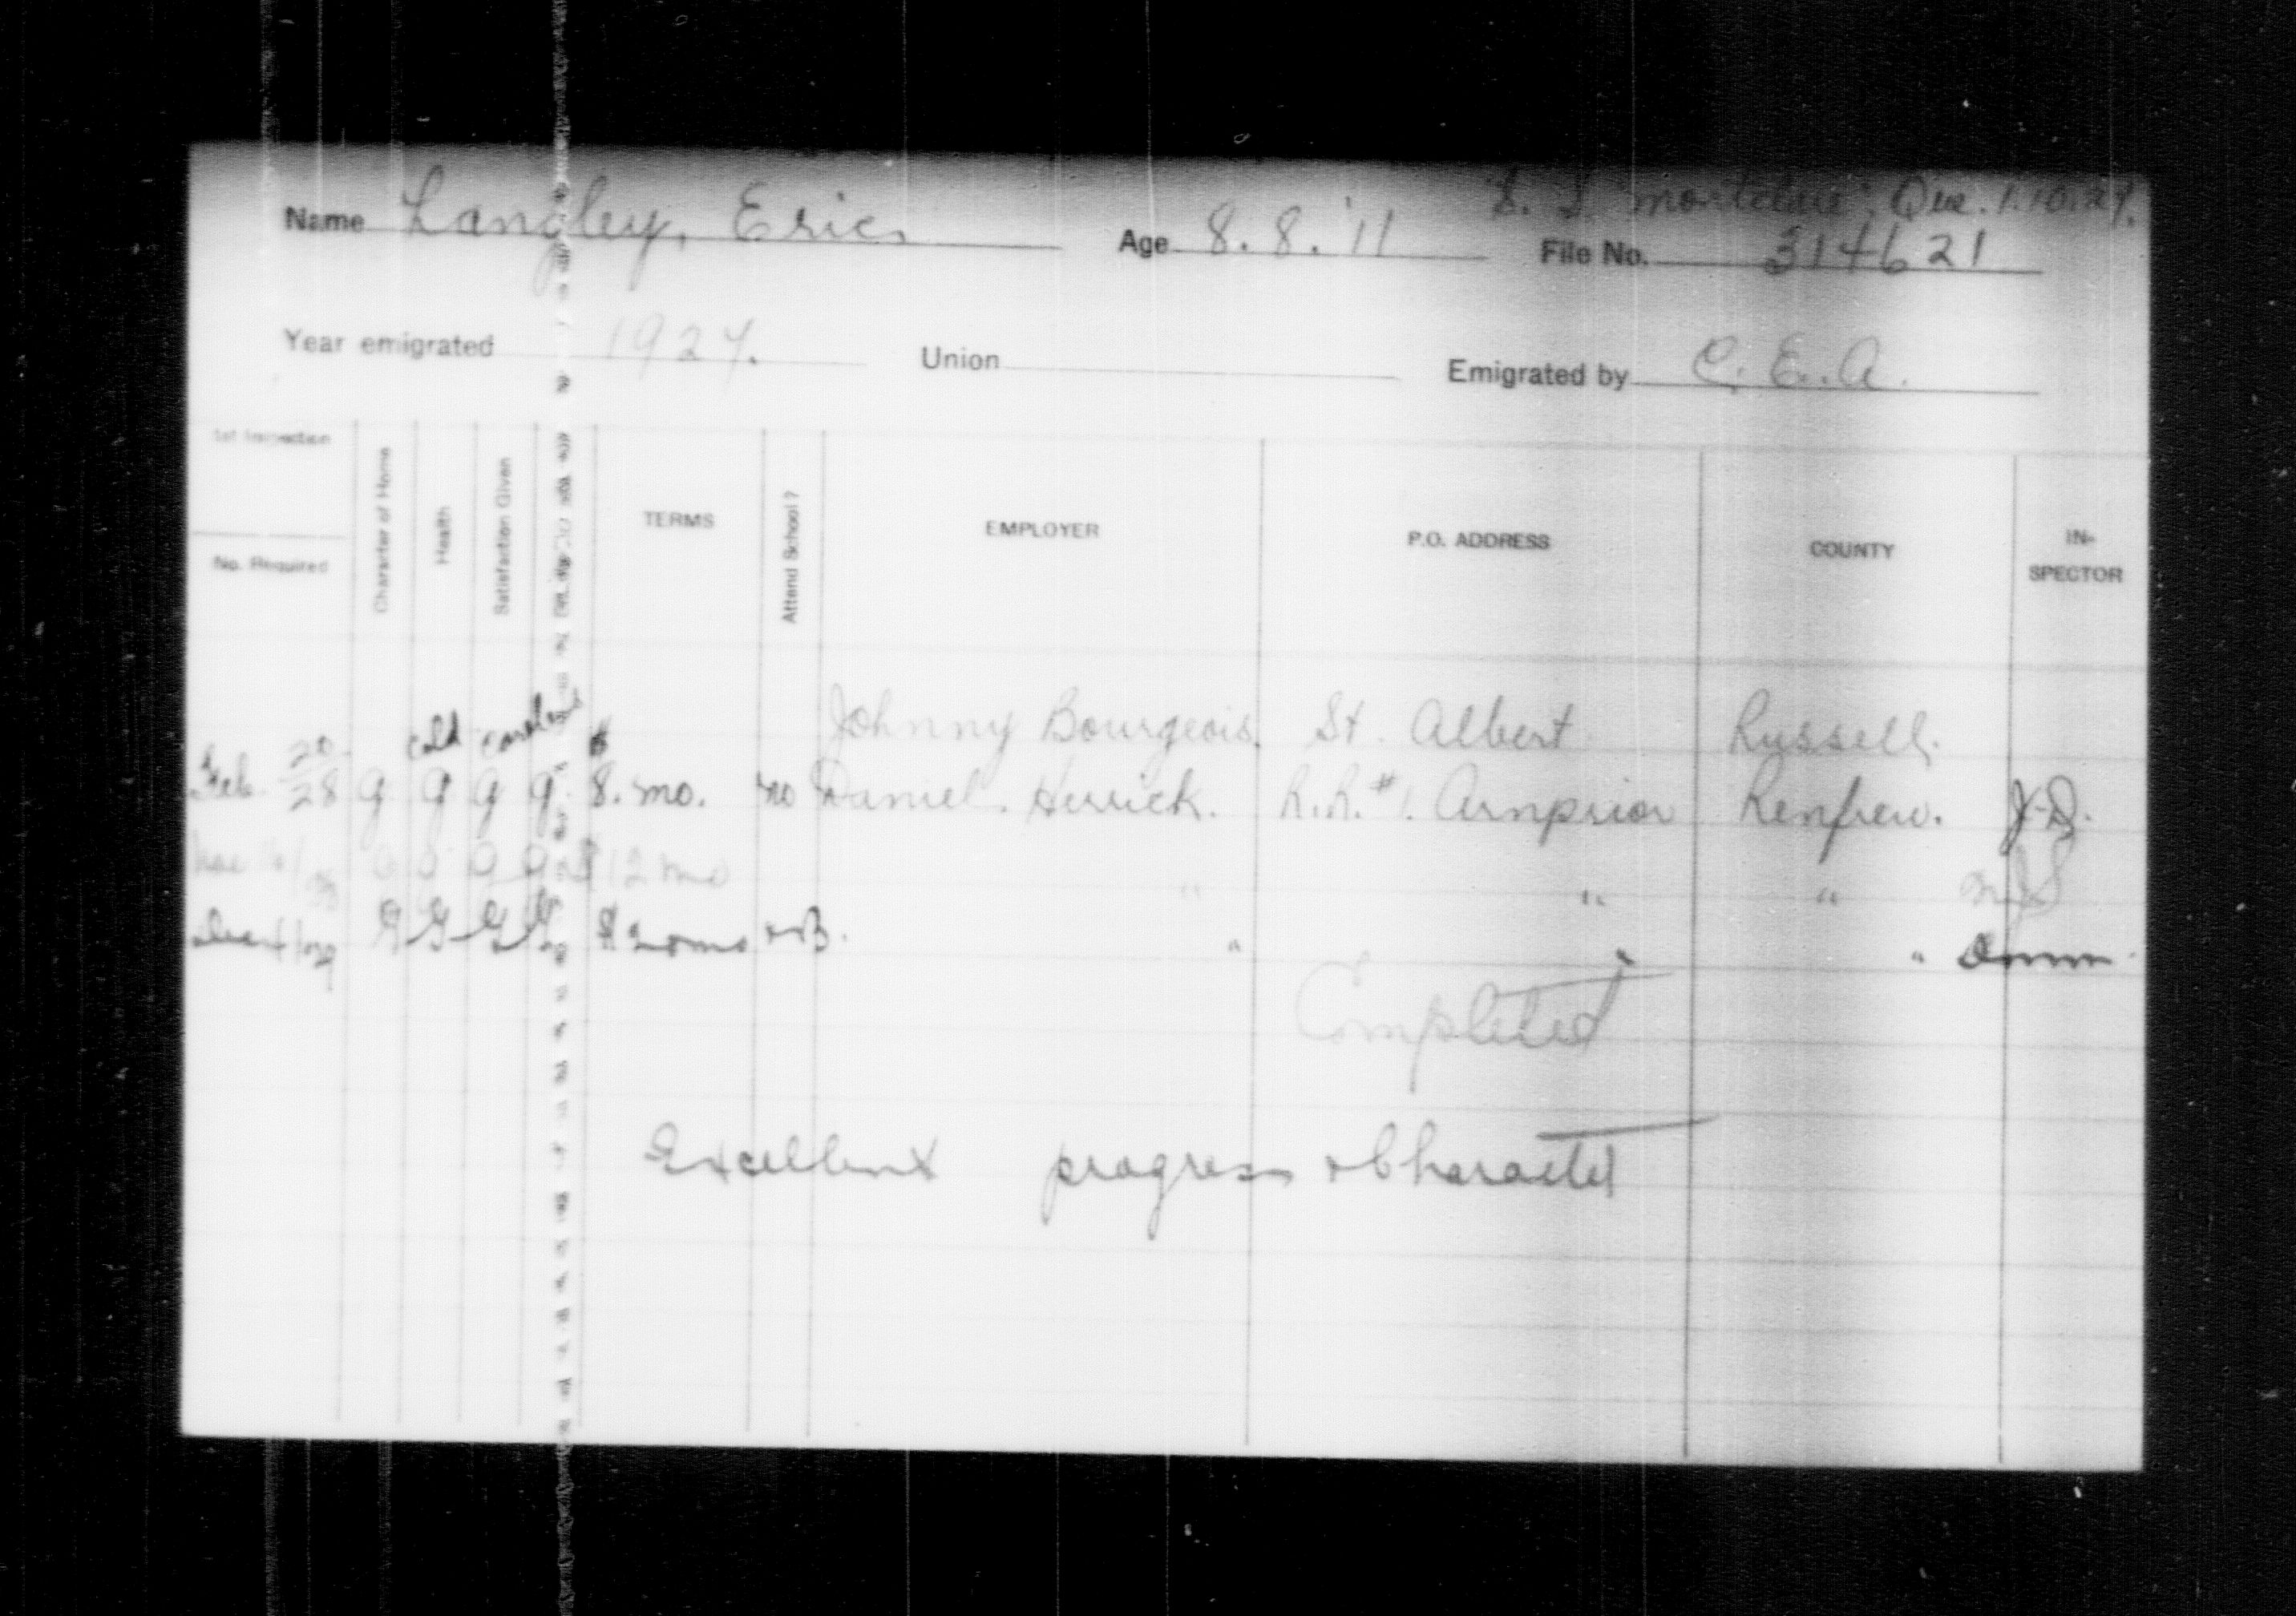 S.S. Montclare, Que. 1.10.27.
Name Langley, Eric. Age 8.8.'11 File No. 314621
Year emigrated 1927. Union Emigrated by C.E.A.
1st Inspection
No. Required
Character of Home
Health
Satisfaction Given
TERMS
Attend School?
EMPLOYER
P.O. ADDRESS
COUNTY
IN-
SPECTOR
Johnny Bourgeois. St. Albert Russell.
cold
Feb. 20/28 g g g g $8. mo. no Daniel Herrick. R.R.#1. Arnprior Renfrew. J.D.
g g g g $12 mo " " "
G G G G $20 mo " " "
Completed
Excellent progress & Character